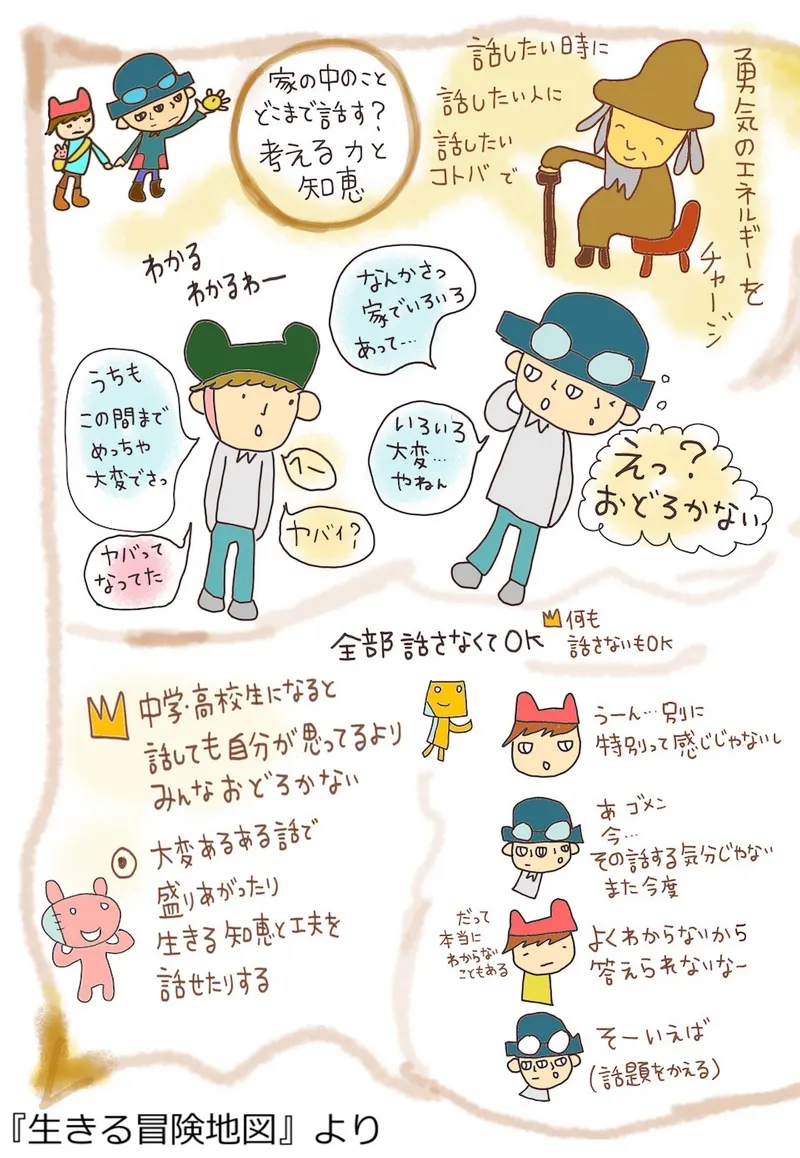 家の中のこと
どこまで話す？
考える力と
知恵
話したい時に
話したい人に
話したい
コトバで
勇気のエネルギーを
チャージ
わかる
わかるわー
なんかさっ
家でいろいろ
あって…
うちも
この間まで
めっちゃ
大変でさっ
へー
ヤバイ？
ヤバって
なってた
いろいろ
大変…
やねん
えっ？
おどろかない
全部話さなくてOK
何も
話さないもOK
中学・高校生になると
話しても自分が思ってるより
みんなおどろかない
大変あるある話で
盛りあがったり
生きる知恵と工夫を
話せたりする
うーん…別に
特別って感じじゃないし
あ ゴメン
今…
その話する気分じゃない
また今度
だって
本当に
わからない
こともある
よくわからないから
答えられないなー
そーいえば
(話題をかえる)
『生きる冒険地図』より